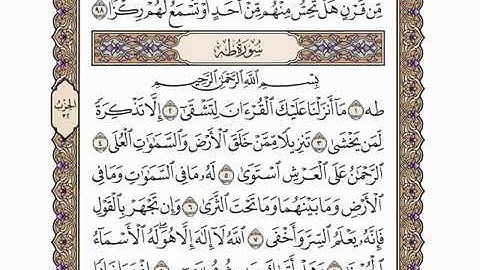 مِّن قَرْنٍ هَلْ تُحِسُّ مِنْهُم مِّنْ أَحَدٍ أَوْ تَسْمَعُ لَهُمْ رِكْزًا ٩٨
سُورَةُ طه
بِسْمِ اللَّهِ الرَّحْمَٰنِ الرَّحِيمِ
طه ١ مَا أَنزَلْنَا عَلَيْكَ الْقُرْءَانَ لِتَشْقَىٰ ٢ إِلَّا تَذْكِرَةً
لِّمَن يَخْشَىٰ ٣ تَنزِيلًا مِّمَّنْ خَلَقَ الْأَرْضَ وَالسَّمَٰوَٰتِ الْعُلَى ٤
الرَّحْمَٰنُ عَلَى الْعَرْشِ اسْتَوَىٰ ٥ لَهُ مَا فِي السَّمَٰوَٰتِ وَمَا فِي
الْأَرْضِ وَمَا بَيْنَهُمَا وَمَا تَحْتَ الثَّرَىٰ ٦ وَإِن تَجْهَرْ بِالْقَوْلِ
فَإِنَّهُ يَعْلَمُ السِّرَّ وَأَخْفَى ٧ اللَّهُ لَا إِلَٰهَ إِلَّا هُوَ لَهُ الْأَسْمَاءُ
الجزء